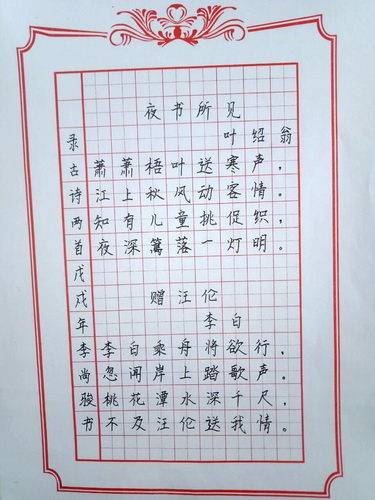 夜书所见
叶绍翁
萧萧梧叶送寒声，
江上秋风动客情。
知有儿童挑促织，
夜深篱落一灯明。
赠汪伦
李白
李白乘舟将欲行，
忽闻岸上踏歌声。
桃花潭水深千尺，
不及汪伦送我情。
录古诗两首戊戌年李尚骏书